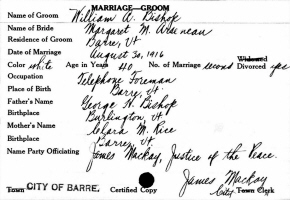 MARRIAGE—GROOM
Name of Groom William A. Bishop
Name of Bride Margaret M. Arseneau
Residence of Groom Barre, Vt.
Date of Marriage August 30, 1916
Color white Age in Years 40 No. of Marriage second Widowed Divorced yes
Occupation Telephone Foreman
Place of Birth Barre, Vt.
Father's Name George N. Bishop
Birthplace Burlington, Vt.
Mother's Name Clara M. Rice
Birthplace Barre, Vt.
Name Party Officiating James Mackay, Justice of the Peace.
James Mackay
Town CITY OF BARRE. Certified Copy City Town Clerk